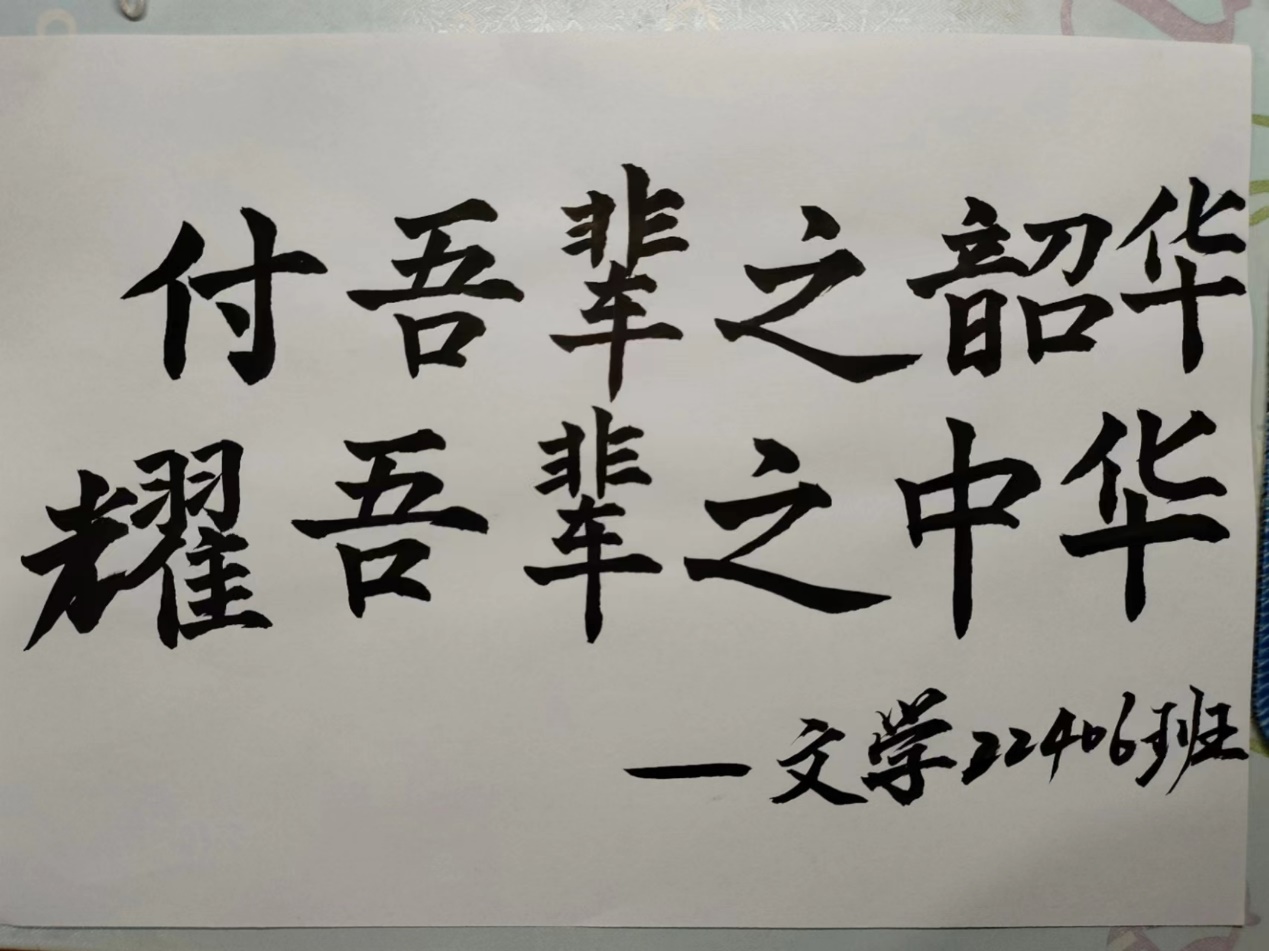 付吾辈之韶华
耀吾辈之中华
—文学22406班